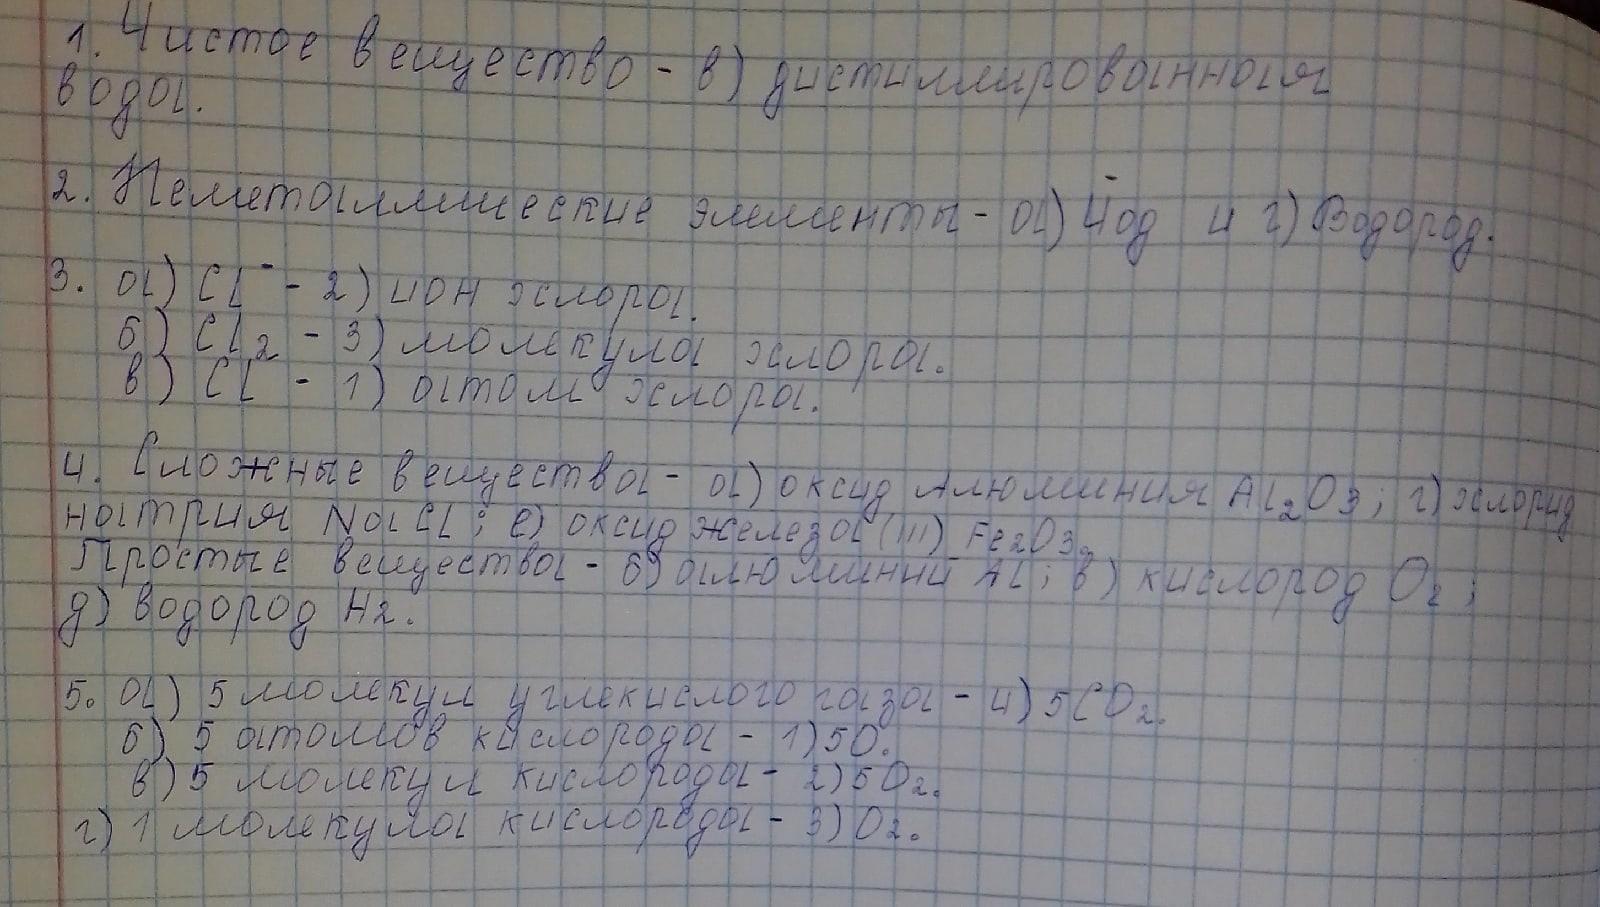 1. Чистое вещество - в) дистиллированная
вода.
2. Неметаллические элементы - а) Йод и г) Водород.
3. а) Cl⁻ - 2) ион хлора.
б) Cl₂ - 3) молекула хлора.
в) Cl - 1) атом хлора.
4. Сложные вещества - а) оксид Алюминия Al₂O3; г) хлорид
натрия NaCl; е) оксид железа (III) Fe₂O3.
Простые вещества - б) алюминий Al; в) кислород O₂;
д) водород H2.
5. а) 5 молекул углекислого газа - 4) 5CO₂.
б) 5 атомов кислорода - 1) 5O.
в) 5 молекул кислорода - 2) 5O₂.
г) 1 молекула кислорода - 3) O₂.